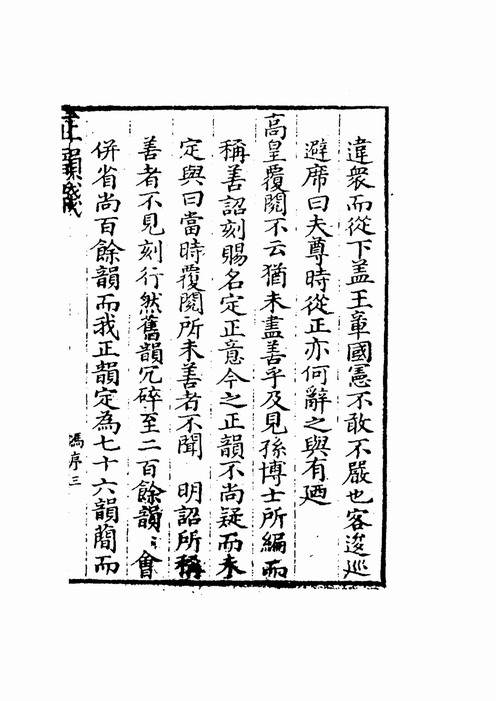 違衆而從下盖王章國憲不敢不嚴也客逡巡
避席曰夫尊時從正亦何辭之與有廼
高皇覆閱不云猶未盡善乎及見孫博士所編而
稱善詔刻賜名定正意今之正韻不尚疑而未
定與曰當時覆閱所未善者不聞 明詔所稱
善者不見刻行然舊韻冗碎至二百餘韻〻會
併省尚百餘韻而我正韻定為七十六韻蕳而
正韻箋
馮序三